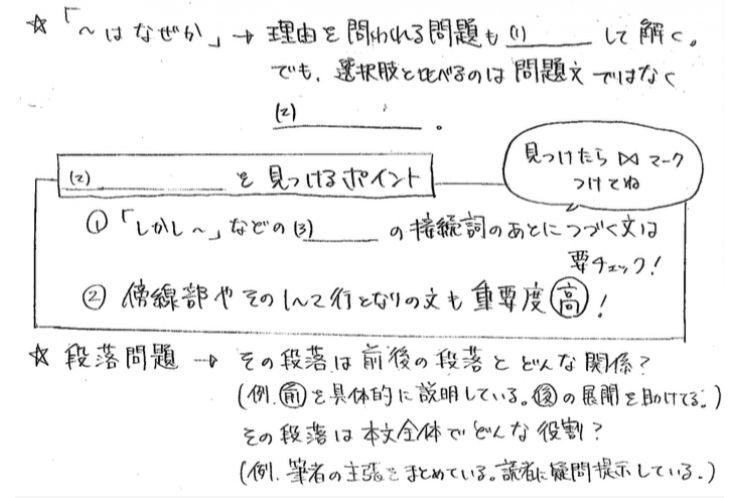 ☆「～はなぜか」→ 理由を問われる問題も (1)______ して解く。
でも、選択肢と比べるのは問題文ではなく
(2)____________。
(2)____________ を見つけるポイント
見つけたら⋈マーク
つけてね
①「しかし～」などの(3)______ の接続詞のあとにつづく文は
要チェック!
② 傍線部やその1〜2行となりの文も重要度高!
☆ 段落問題 → その段落は前後の段落とどんな関係?
(例.前を具体的に説明している。後の展開を助けてる。)
その段落は本文全体でどんな役割?
(例.筆者の主張をまとめている。読者に疑問提示している。)